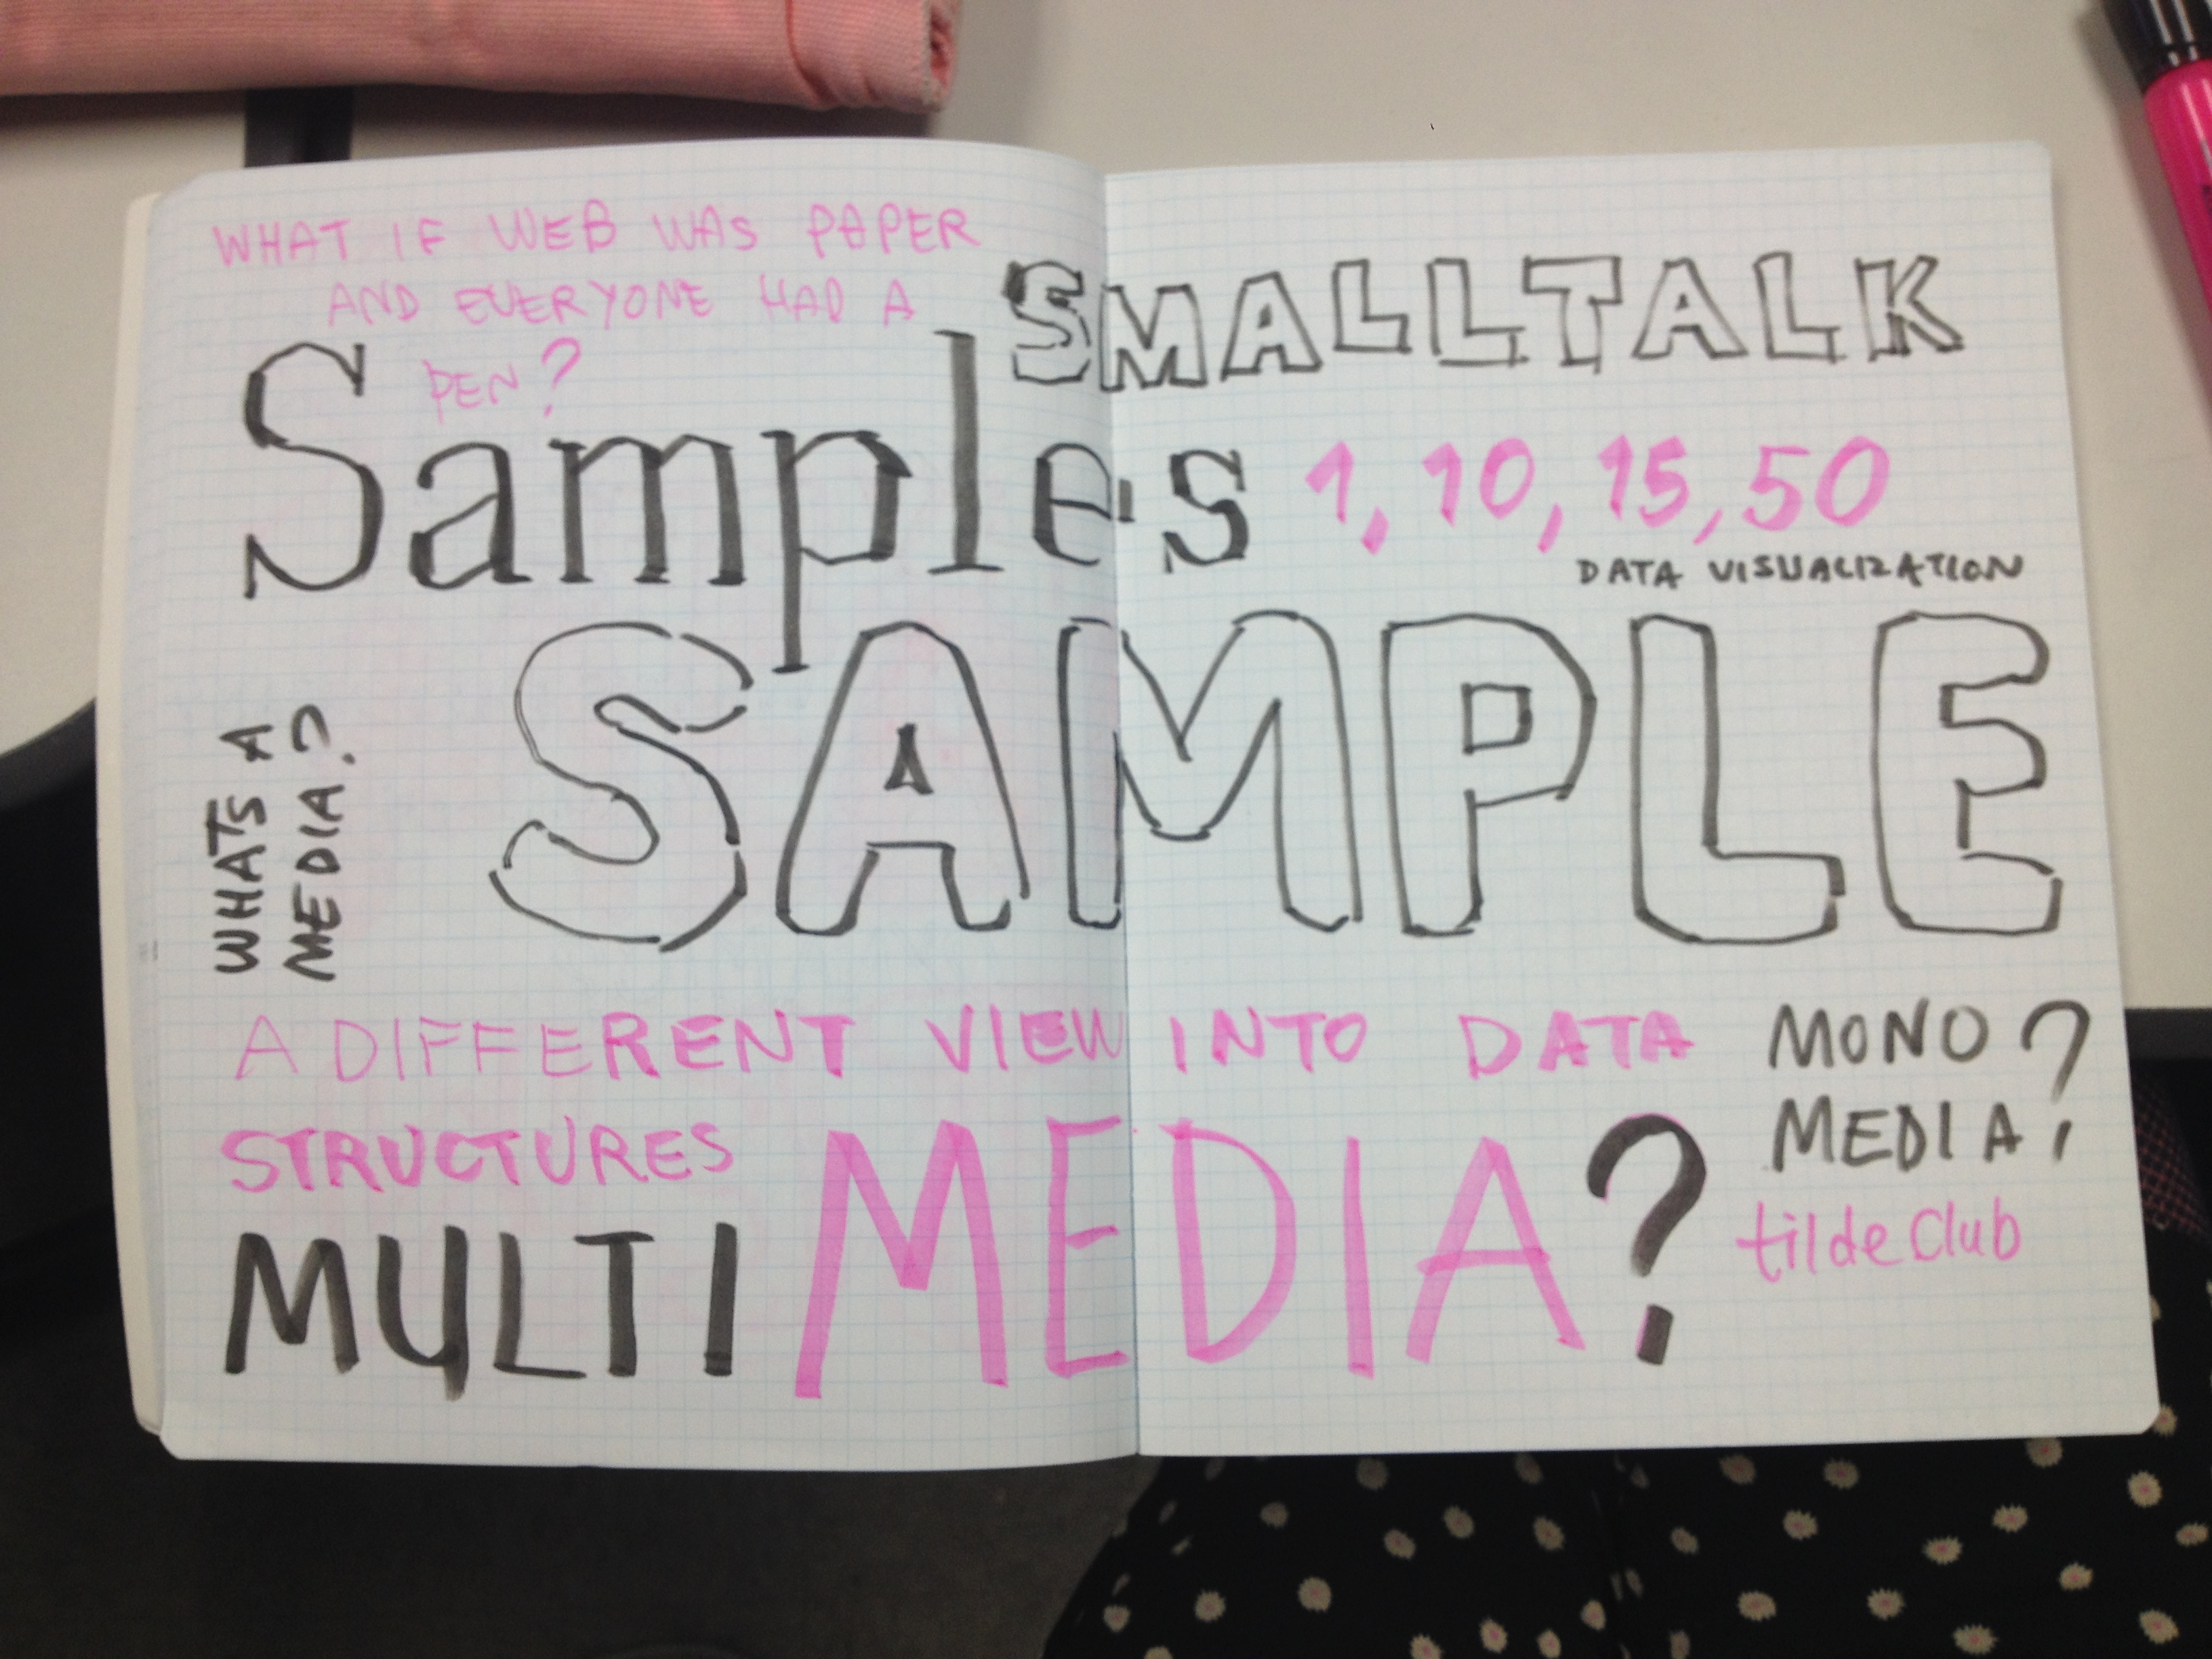 WHAT IF WEB WAS PAPER
AND EVERYONE HAD A
PEN?
SMALLTALK
Samples 1, 10, 15, 50
DATA VISUALIZATION
SAMPLE
WHATS A
MEDIA?
A DIFFERENT VIEW INTO DATA
STRUCTURES
MONO
MEDIA?
MULTI MEDIA?
tilde Club